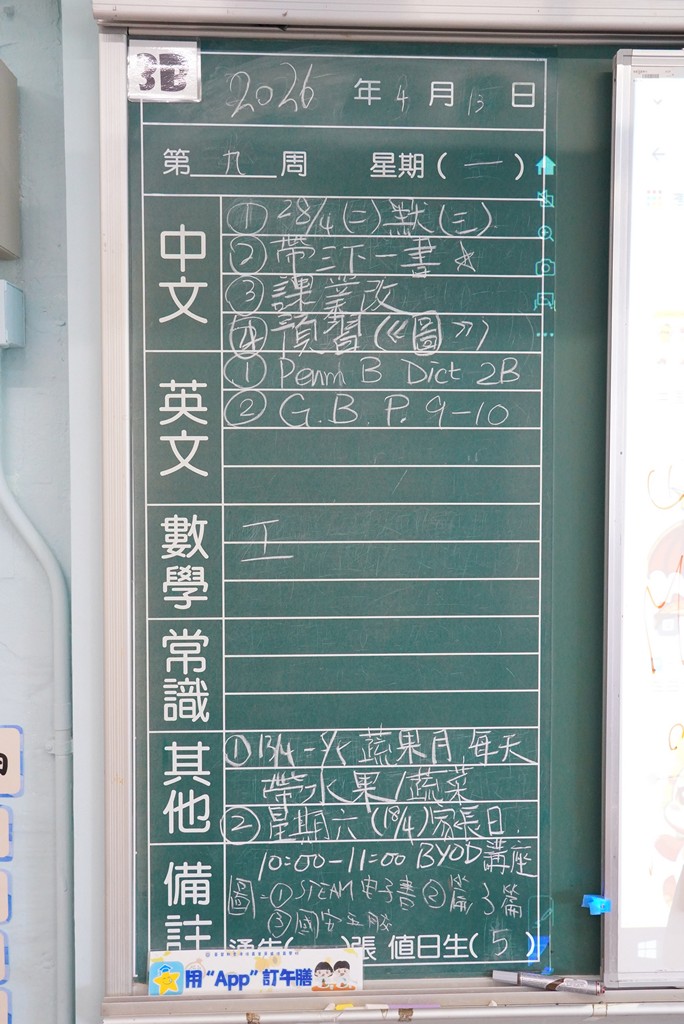 3D
2026 年 4 月 13 日
第 九 周 星期 ( 一 )
中文
① 28/4 (二) 默 (三)
② 帶三下一書 ☆
③ 課業改
④ 預習 (《圖》)
英文
① Penm B Dict 2B
② G.B. P. 9-10
數學
工
常識
其他
① 13/4 - 9/5 蔬果月 每天
帶水果/蔬菜
② 星期六 (18/4) 家長日
備註
10:00-11:00 BYOD 講座
圖 = ① STEAM 电子書 ②
③ 國安
通告( )張 值日生( 5 )
用 “App” 訂午膳